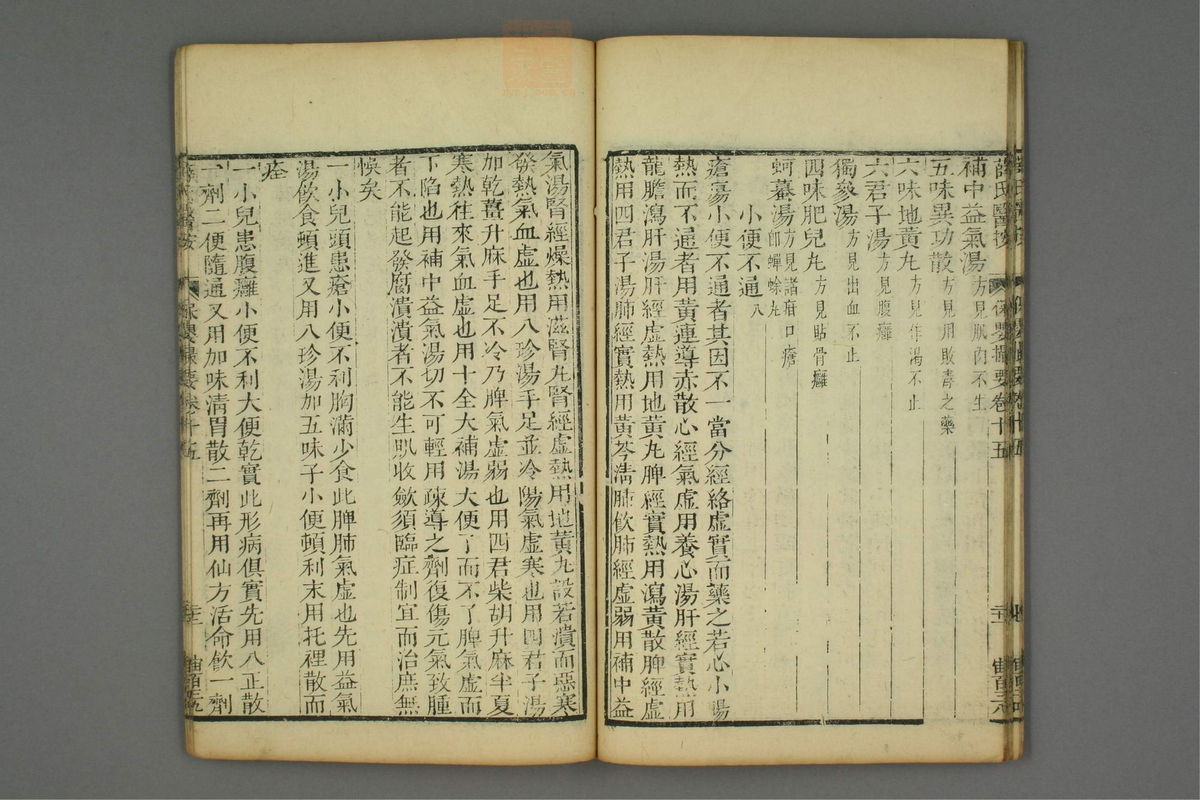 薛氏醫按 保嬰撮要卷十五
補中益氣湯方見肌肉不生
五味異功散方見用敗毒之藥
六味地黃丸方見作渴不止
六君子湯方見腹癰
獨參湯方見出血不止
四味肥兒丸方見貼骨癰
蚵蟇湯方見諸疳口瘡即蟬蜍丸
小便不通八
瘡瘍小便不通者其因不一當分經絡虛實而藥之若心小腸
熱而不通者用黃連導赤散心經氣虛用養心湯肝經實熱用
龍膽瀉肝湯肝經虛熱用地黃丸脾經實熱用瀉黃散脾經虛
熱用四君子湯肺經實熱用黃芩淸肺飲肺經虛弱用補中益
氣湯腎經燥熱用滋腎丸腎經虛熱用地黃丸設若潰而惡寒
發熱氣血虛也用八珍湯手足並冷陽氣虛寒也用四君子湯
加乾薑升麻手足不冷乃脾氣虛弱也用四君柴胡升麻半夏
寒熱徃來氣血虛也用十全大補湯大便了而不了脾氣虛而
下陷也用補中益氣湯切不可輕用疎導之劑復傷元氣致腫
者不能起發腐潰潰者不能生肌收斂須臨症制宜而治庶無
悞矣
一小兒頭患瘡小便不利胸滿少食此脾肺氣虛也先用益氣
湯飲食頓進又用八珍湯加五味子小便頓利末用托裡散而
痊
一小兒患腹癰小便不利大便乾實此形病俱實先用八正散
一劑二便隨通又用加味清胃散二劑再用仙方活命飲一劑